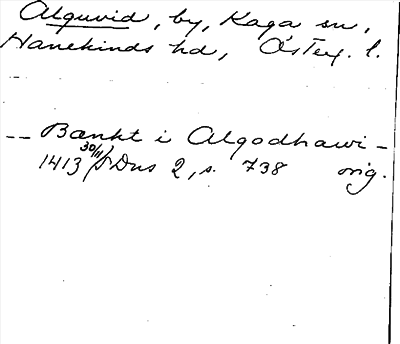 Alguvid, by, Kaga sn,
Hanekinds hd, Östg. l.
-- Bænkt i Algodhawi -
1413 30/11 Dns 2, s. 738 orig.